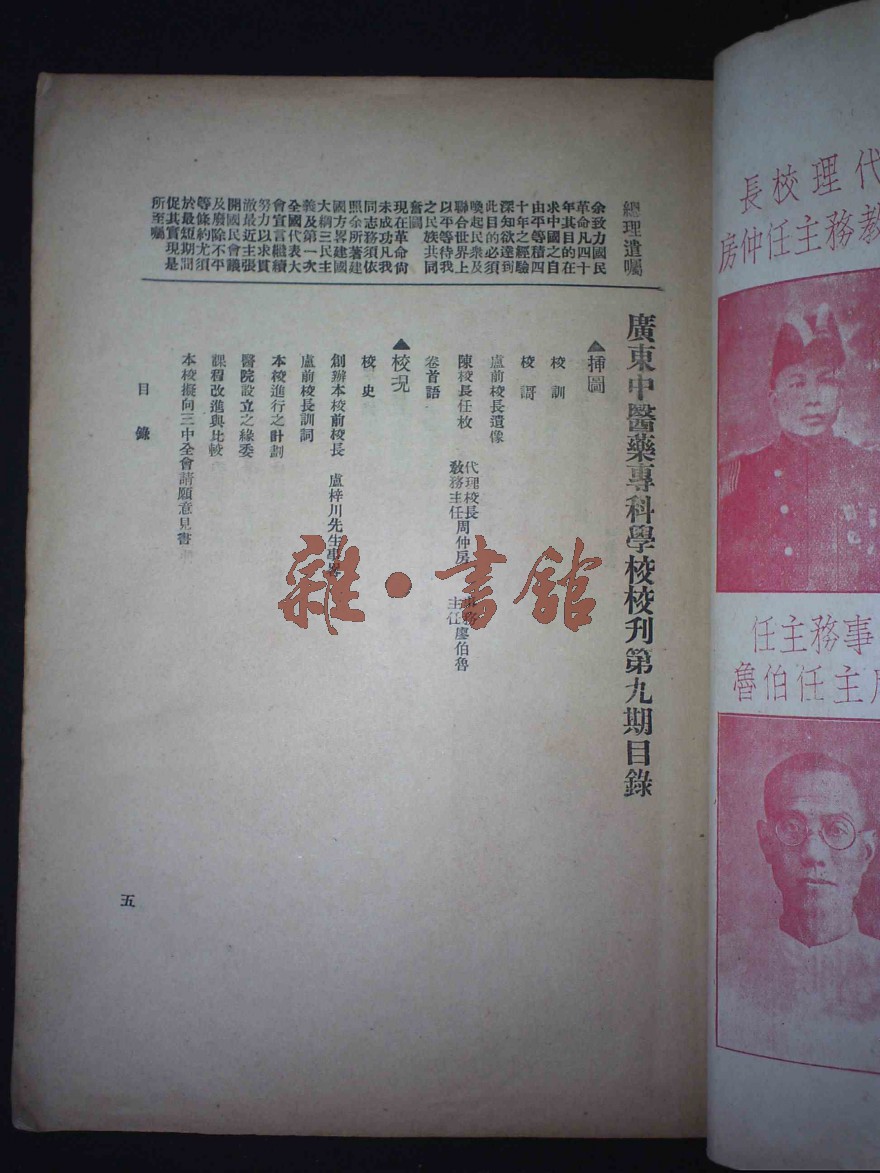 代理校長
教務主任仲房
事務主任
主任伯魯
總理遺囑
余致力國民
革命凡四十
年其目的在
求中國之自
由平等積四
十年之經驗
深知欲達到
此目的必須
喚起民衆及
聯合世界上
以平等待我
之民族共同
奮鬪
現在革命尙
未成功凡我
同志務須依
照余所著建
國方畧建國
大綱三民主
義及第一次
全國代表大
會宣言繼續
努力以求貫
澈最近主張
開國民會議
及廢除不平
等條約尤須
於最短期間
促其實現是
所至囑
廣東中醫藥專科學校校刋第九期目錄
▲揷圖
校訓
校謌
盧前校長遺像
陳校長任枚 代理校長教務主任周仲房 事務主任廖伯魯
卷首語
▲校况
校史
創辦本校前校長 盧梓川先生事畧
盧前校長訓詞
本校進行之計劃
醫院設立之緣委
課程改進與比較
本校擬向三中全會請願意見書
目錄
五
雜·書館